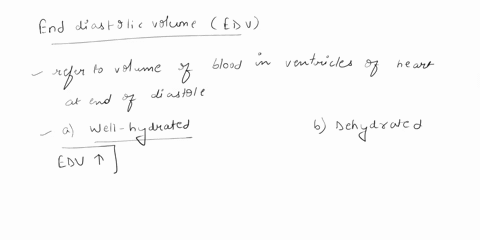 End diastolic volume (EDV)
- refer to volume of blood in ventricles of heart
at end of diastole
- a) Well-hydrated b) Dehydrated
EDV ↑